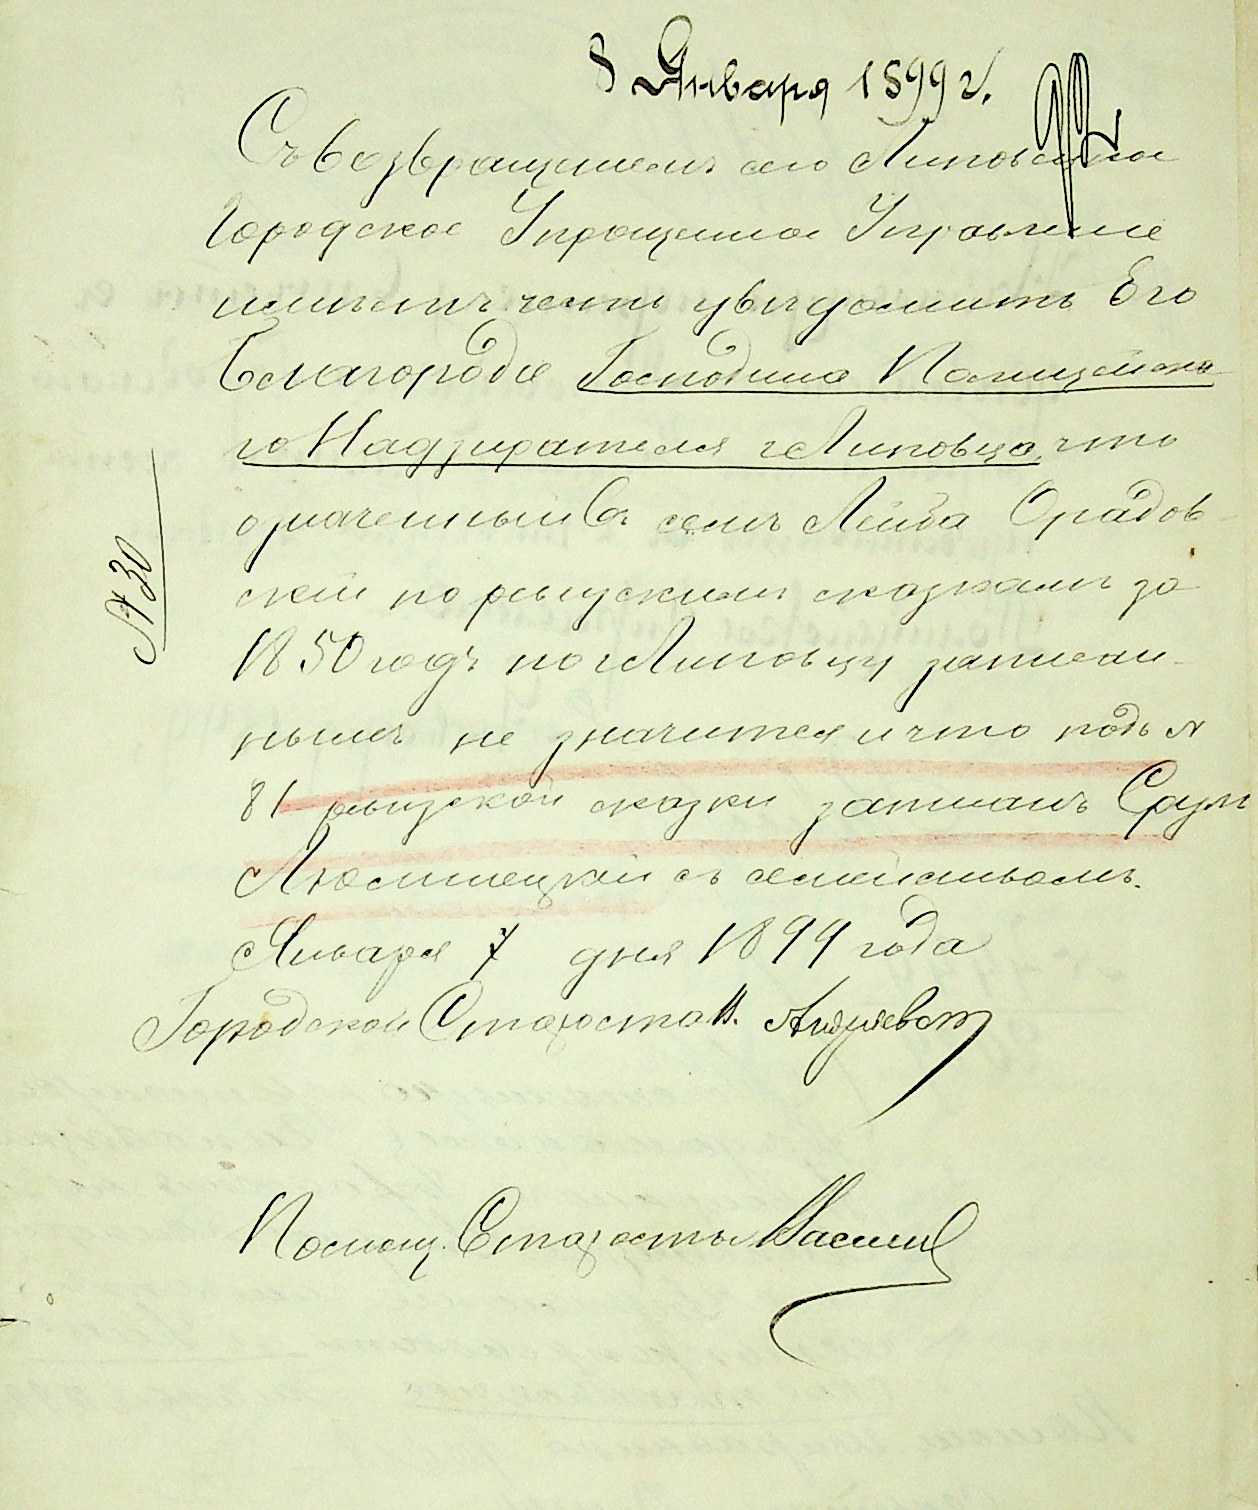 8 Января 1899 г.
Съ возвращеніемъ сего Липовецкое
Городское Упрощенное Управленіе
имѣетъ честь увѣдомить Его
Благородіе Господина Полицейска
го Надзирателя г Липовца, что
означенный въ семъ Лейба Орадов-
скій по ревизскимъ сказкамъ за
1850 годъ по г Липовцу записан-
нымъ не значится и что подъ №
81 ревизской сказки записанъ Сруль
с семействомъ.
Января 7 дня 1899 года
Городской Староста
Помощ. Старосты
№ 30